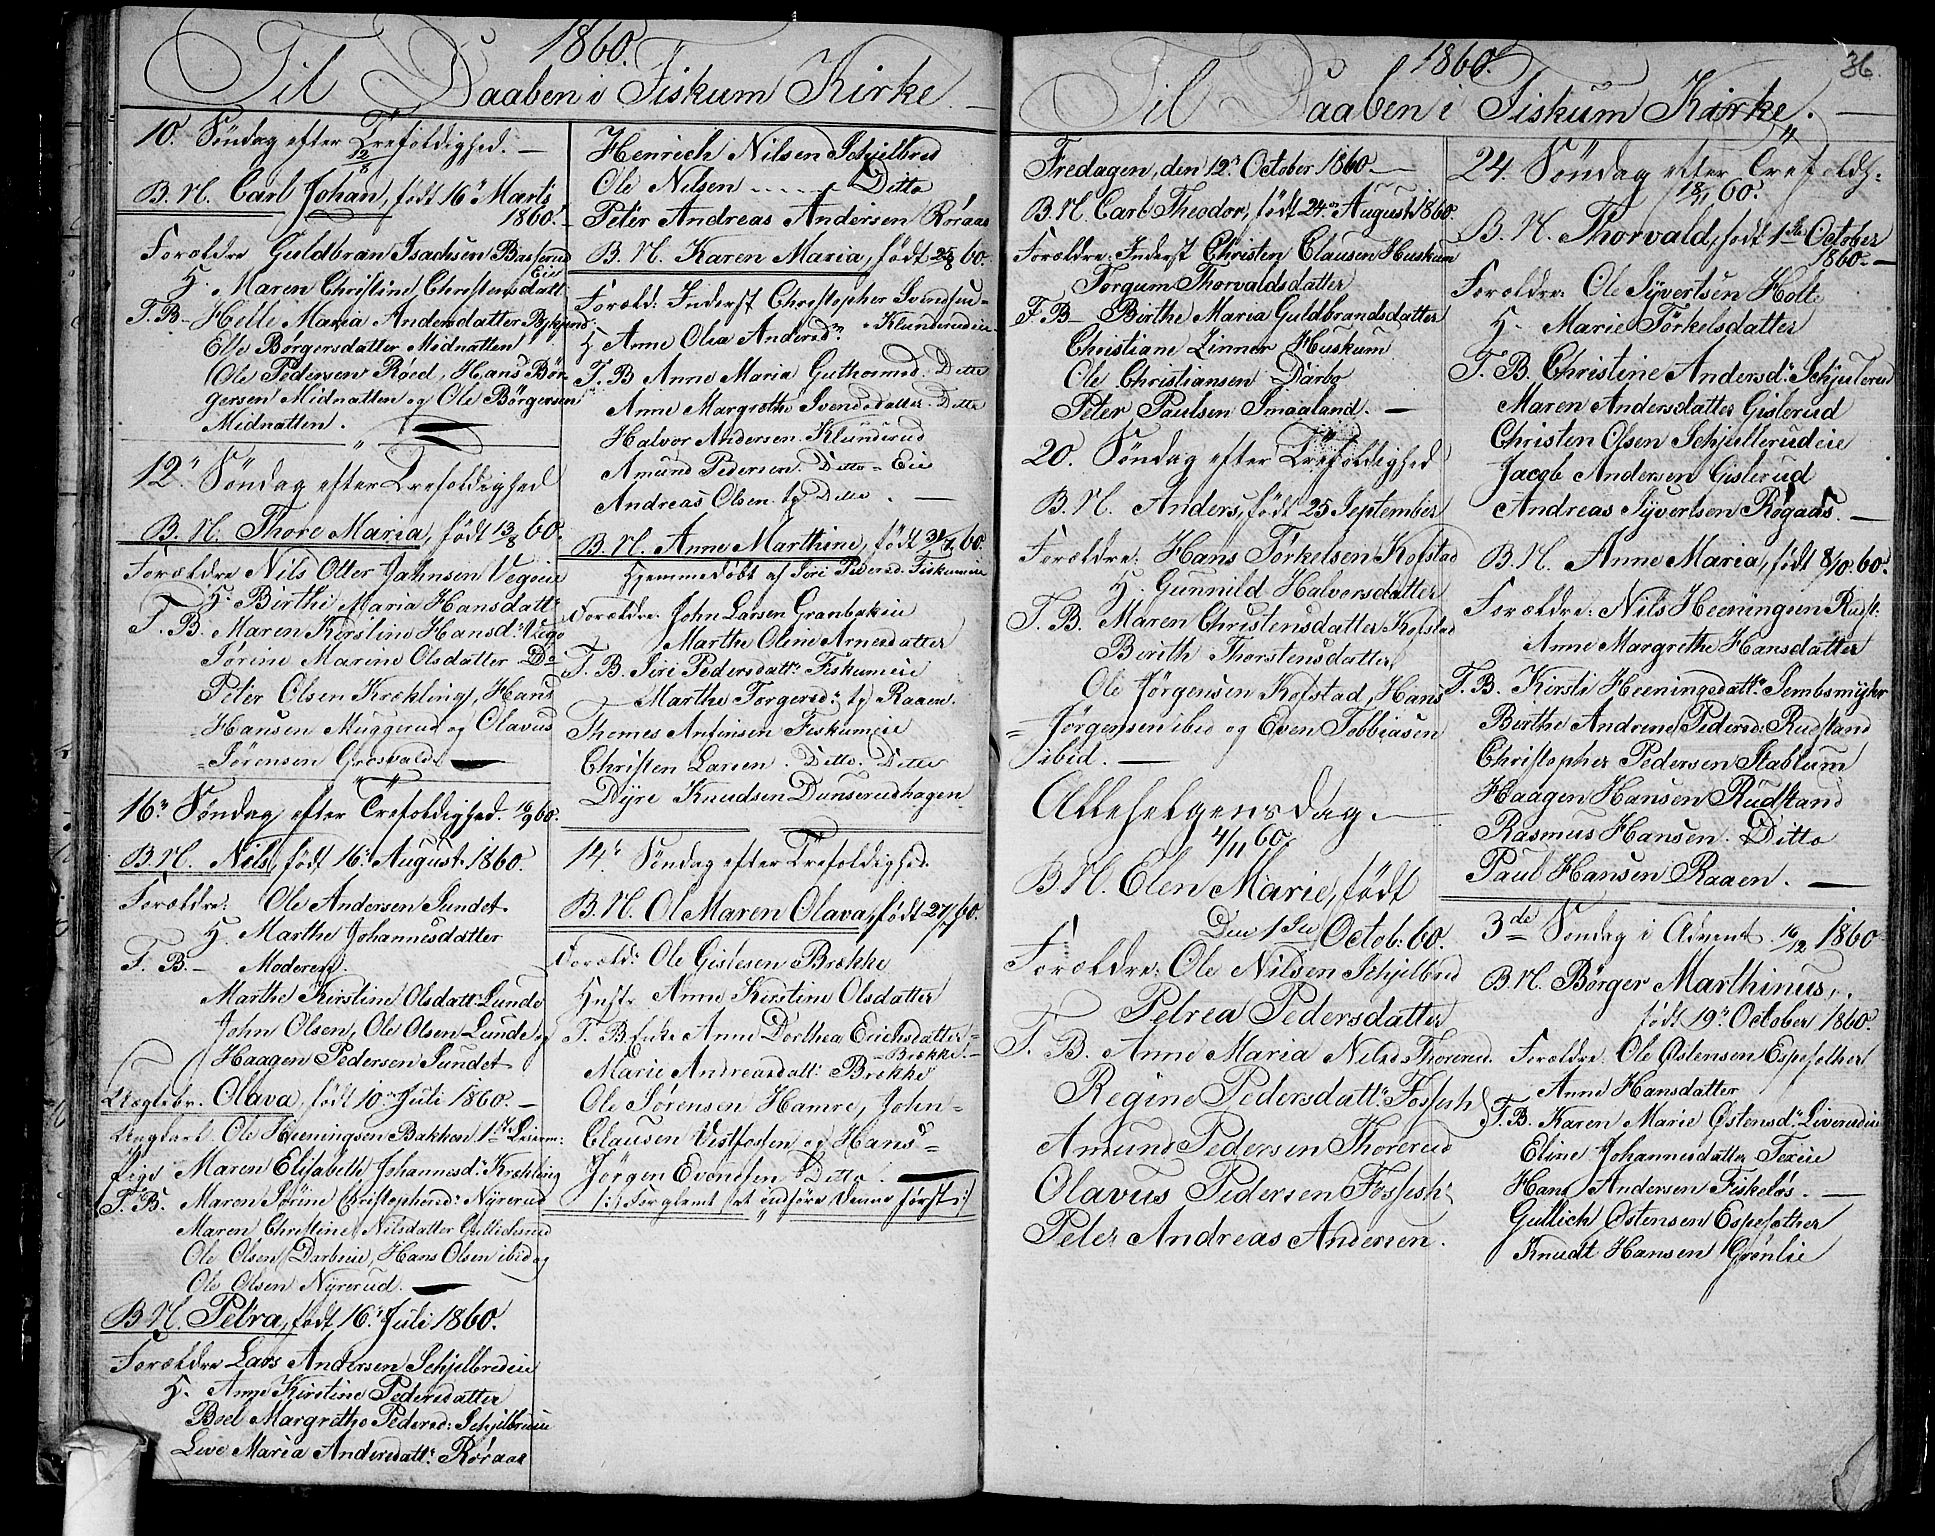 1860.
Til Daaben i Fiskum Kirke.
10. Søndag efter Trefoldighed.
12/8
B. N. Carl Johan, født 16 Marts
1860.
Forældre Guldbran Isachsen Basserud
Eie
H. Maren Christine Christensdatt:
F. B. Helle Maria Andersdatter
Elle Børgersdatter Midnatten
Ole Pedersen Røed, Hans Bør-
gersen Midnatten og Ole Børgersen
Midnatten.
12. Søndag efter Trefoldighed
B. N. Thore Maria, født 13/8 60.
Forældre Nils Otter Jahnsen Vegoeie
H. Birthe Maria Hansdatt:
F. B. Maren Kirstine Hansd: Vego
Sørine Marine Olsdatter Do
Peter Olsen Krækling, Hans
Hansen Muggerud og Olavus
Sørensen Grosvald.
16 Søndag efter Trefoldighed. 16/9 60.
B. N. Nils, født 16 August 1860.
Forældre: Ole Andersen Sundet
H. Marthe Johannesdatter
F. B. Moderen
Marthe Kirstine Olsdatt: Lunde
John Olsen, Ole Olsen Lunde og
Haagen Pedersen Sundet
Uægtebr. Olava, født 10 Juli 1860.
Ungkarl Ole Heeningsen Bakken 1ste Leierm:
Pige Maren Elisabeth Johannesd: Krækling
F. B. Maren Sørine Christophersd: Nyrerud
Maren Christine Nilsdatter Gullichsrud
Ole Olsen Darboeie, Hans Olsen ibid og
Ole Olsen Nyrerud.
B. N. Petra, født 16 Juli 1860.
Forældre Lars Andersen Schjelbredeie
H. Anne Kirstine Pedersdatter
Boel Margrethe Pedersd: Schjelbredeie
Live Maria Andersdatt: Røraas
Henrich Nilsen Schjelbred
Ole Nilsen Ditto
Peter Andreas Andersen Røraas
B. N. Karen Maria, født 25/8 60.
Foræld: Inderst Christopher Svendsen
Klunderudeie
H Anne Olea Andersd:
F. B Anne Maria Guthormsd. Ditto
Anne Margrethe Svendsdatter. Ditto
Halvor Andersen. Klunderud
Amund Pedersen. Ditto Eie
Andreas Olsen. Ditto.
B. N. Anne Marthine, født 31/7 60.
Hjemmedøbt af Siri Pedersd: Fiskumeie
Forældre John Larsen Granbakeie
Marthe Oline Arnesdatter
F. B. Siri Pedersdatt: Fiskumeie
Marthe Torgersd: Raaen.
Thomes Anfinsen Fiskumeie
Christen Larsen. Ditto. Ditto
Dyre Knudsen Dunserudhagen
14 Søndag efter Trefoldighed.
B. N. Ole Maren Olava, født 27/7 60.
Foræld: Ole Gislesen Brække
Hustr Anne Kirstine Olsdatter
F. B. Enke Anne Dorthea Erichsdatter
Brække.
Marie Andreasdatt: Brække
Ole Sørensen Hamre, John
Clausen Vestfossen og Hans
Jørgen Evensen Ditto.
/: Forglemt at indføre denne først :/
1860.
36.
Til Daaben i Fiskum Kirke.
Fredagen, den 12 October 1860
B. N. Carl Theodor, født 24 August 1860.
Forældre: Inderst Christen Clausen Huskum
Torgum Thorvaldsdatter
F. B Birthe Maria Guldbrandsdatter
Christiane Linner Huskum
Ole Christiansen Darbo
Peter Paulsen Smaaland.
20. Søndag efter Trefoldighed
B. N. Anders, født 25 September
Forældre: Hans Torkelsen Kofstad
H. Gunnild Halvorsdatter
F. B. Maren Christensdatter Kofstad
Berith Thorstensdatter
Ole Jørgensen Kofstad, Hans
Jørgensen ibid og Even Tobbiasen
ibid.
Allehelgensdag.
4/11 60.
B. N. Elen Marie, født
Den 1ste Octob: 60.
Forældre: Ole Nilsen Schjelbred
Petrea Pedersdatter
F. B. Anne Maria Nilsd Thorerud
Regine Pedersdatt: Fossesh
Amund Pedersen Thorerud
Olavus Pedersen Fossesh
Peter Andreas Andersen.
24. Søndag efter Trefoldh:
18/11 60.
B. N. Thorvald, født 1ste October
1860.
Forældre: Ole Syvertsen Holte
H. Marie Törkelsdatter
F. B. Christine Andersd: Schjulerud
Maren Andersdatter Gislerud
Christen Olsen Schjullerudeie
Jacob Andersen Gislerud
Andreas Syvertsen Røgaas.
B. N. Anne Maria, født 8/10. 60.
Forældre: Nils Heeningsen Rust:
Anne Margrethe Hansdatter
F. B. Kirsti Heeningsdatt: Sembsmyhr
Birthe Andrene Pedersd: Rudstand
Christopher Pedersen Stablum
Haagen Hansen Rudstand
Rasmus Hansen. Ditto
Paul Hansen Raaen.
3de Søndag i Advent 16/12 1860
B. N. Børger Marthinus,
født 19 October 1860.
Forældre. Ole Østensen Espesether
Anne Hansdatter
F. B. Karen Marie Østensd: Liverudeie
Eline Johannesdatter Texeie
Hans Andersen Fiskeløs.
Gullich Østensen Espesæther
Knudt Hansen Grønlie